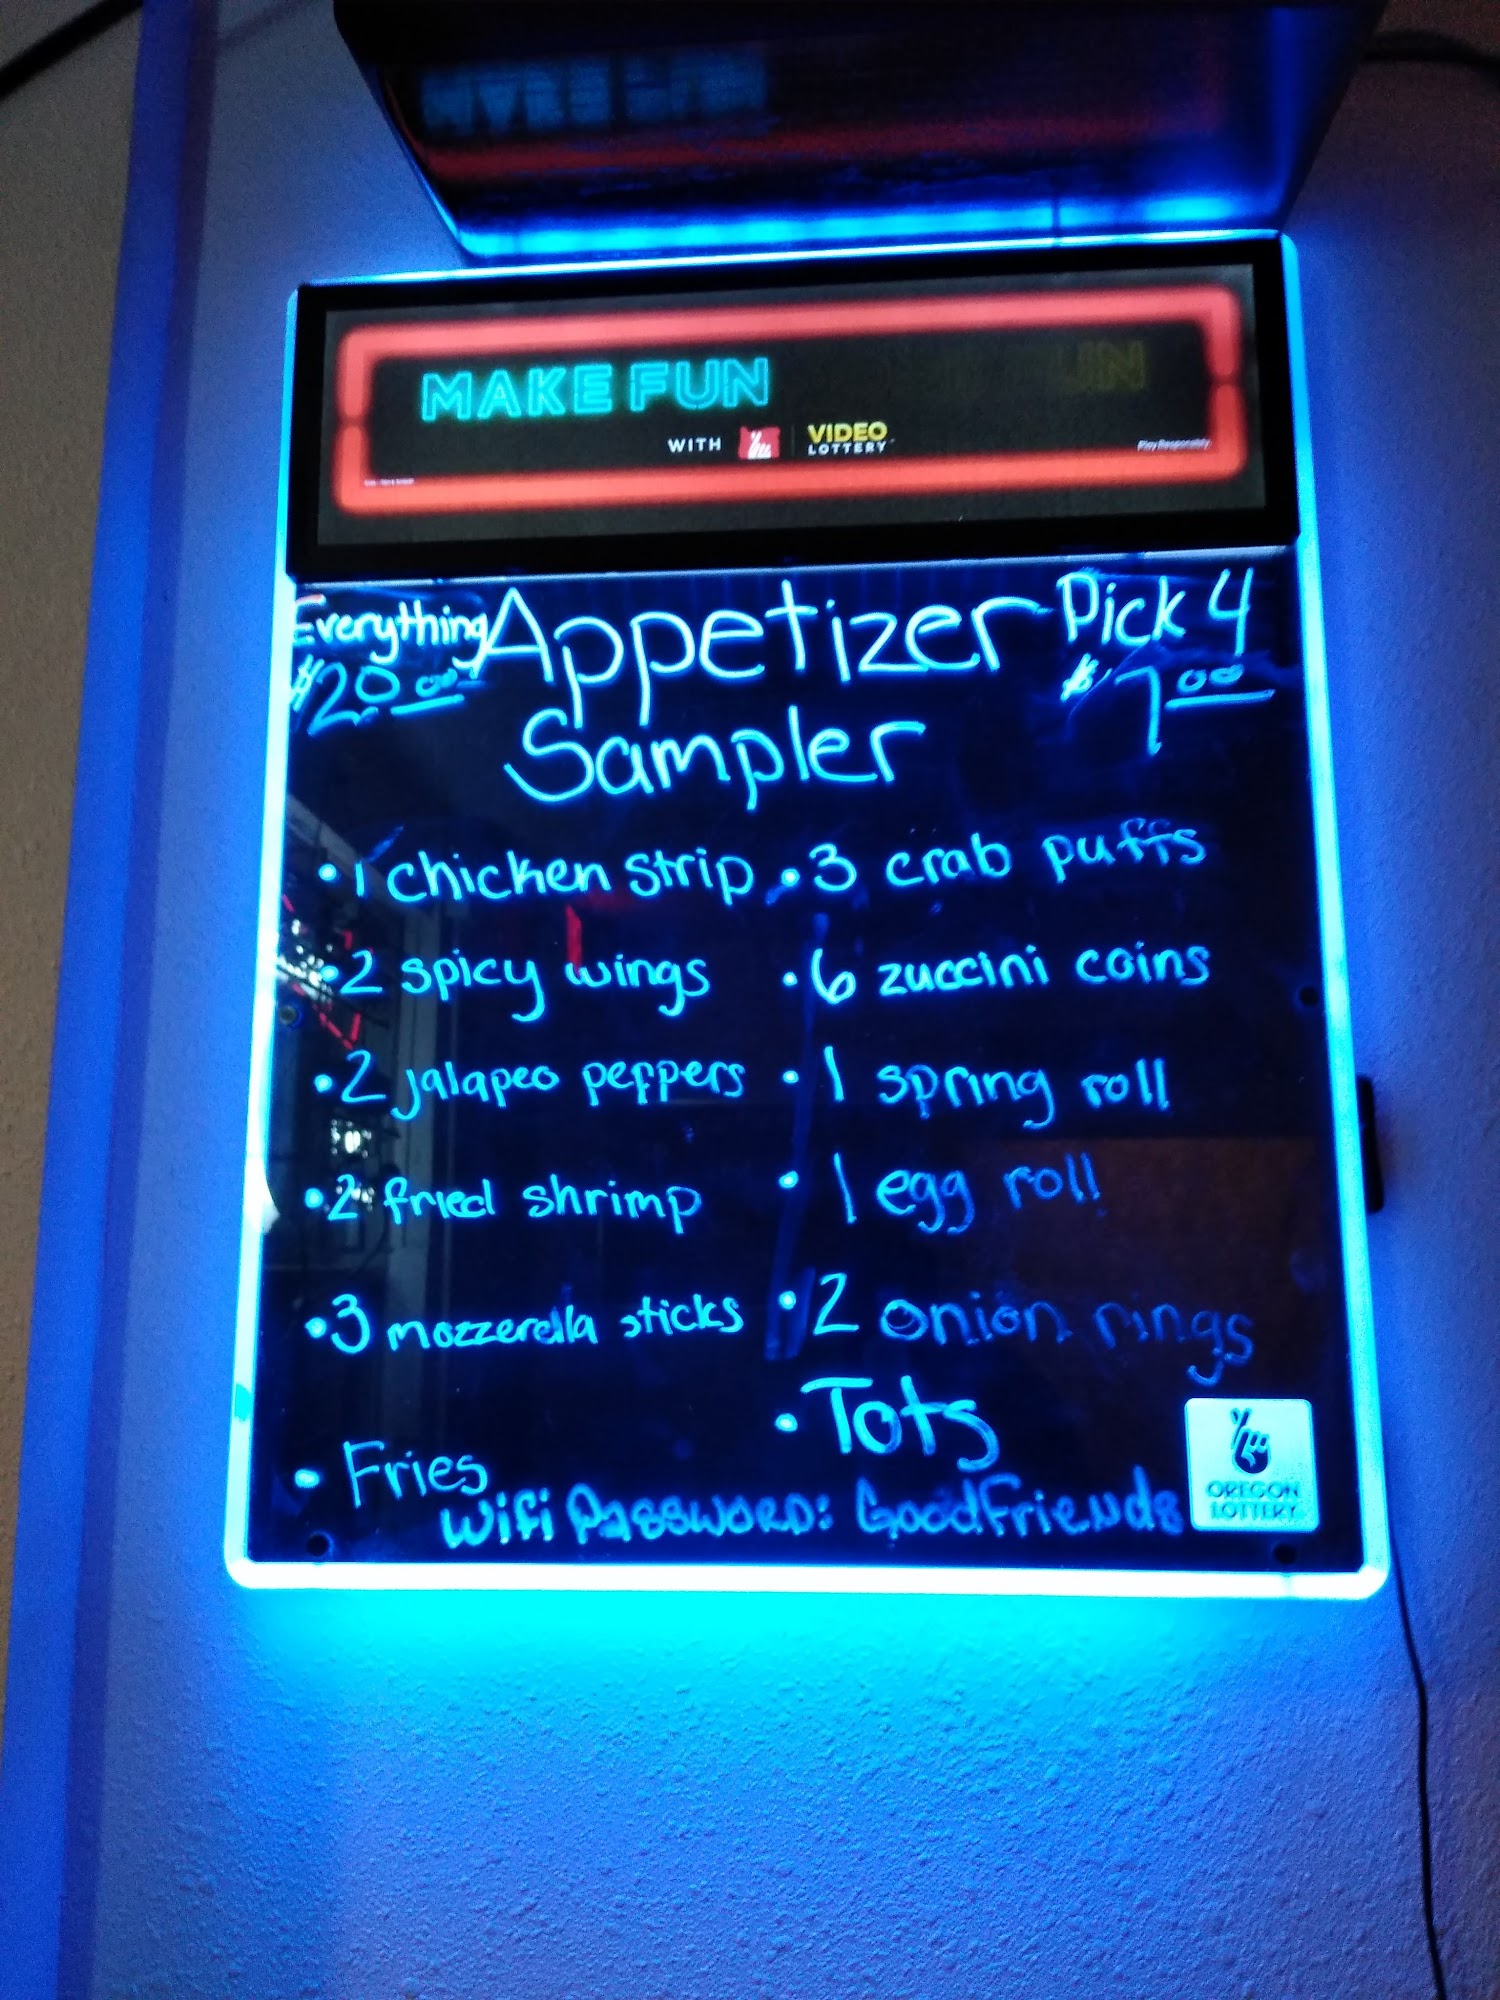 MAKE FUN
WITH VIDEO LOTTERY
Play Responsibly
Everything
$20.00
Appetizer
Sampler
Pick 4
$7.00
• 1 chicken strip
• 2 spicy wings
• 2 jalapeo peppers
• 2 fried shrimp
• 3 mozzerella sticks
• Fries
• 3 crab puffs
• 6 zuccini coins
• 1 spring roll
• 1 egg roll
• 2 onion rings
• Tots
Wifi Password: GoodFriends
OREGON
LOTTERY